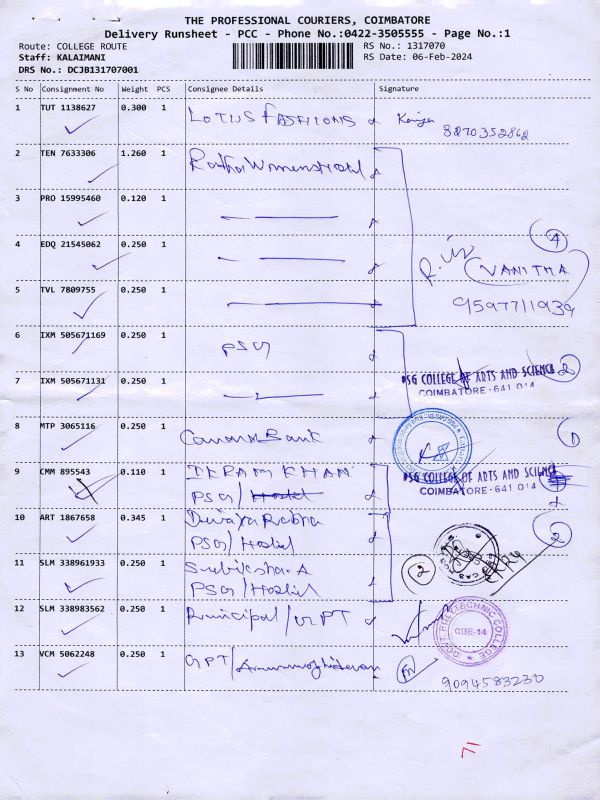 THE PROFESSIONAL COURIERS, COIMBATORE
Delivery Runsheet - PCC - Phone No.:0422-3505555 - Page No.:1
Route: COLLEGE ROUTE
RS No.: 1317070
Staff: KALAIMANI
RS Date: 06-Feb-2024
DRS No.: DCJB131707001
S No Consignment No Weight PCS Consignee Details Signature
1 TUT 1138627 0.300 1 LOTUS FASHIONS
8270352862
2 TEN 7633306 1.260 1
3 PRO 15995460 0.120 1
4 EDQ 21545062 0.250 1
4
VANITHA
5 TVL 7809755 0.250 1
9597711939
6 IXM 505671169 0.250 1 PSG
PSG COLLEGE OF ARTS AND SCIENCE
COIMBATORE-641 014
2
7 IXM 505671131 0.250 1
8 MTP 3065116 0.250 1 Canara Bank
1
9 CMM 895543 0.110 1 IKRAM KHAN
PSG / Hostel
PSG COLLEGE OF ARTS AND SCIENCE
COIMBATORE-641 014
10 ART 1867658 0.345 1
PSG / Hostel
2
11 SLM 338961933 0.250 1 Subiksha. A
PSG / Hostel
2
12 SLM 338983562 0.250 1 Principal / GPT
GOVT. POLYTECHNIC COLLEGE
CBE-14
13 VCM 5062248 0.250 1 GPT /
9094583230